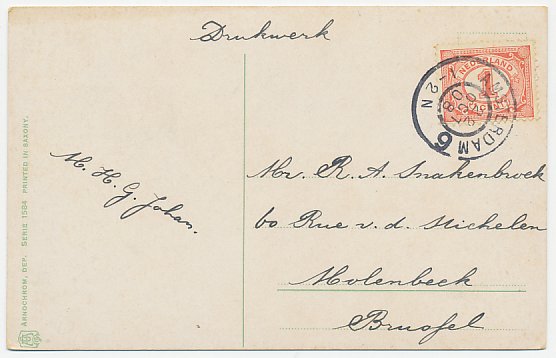 Drukwerk
NEDERLAND
1
CENT
AMSTERDAM 6
1-2 N
M. H. G. Johan.
Mr. R. A. Snakenbroek
60 Rue v. d. Stichelen
Molenbeek
Brussel
ARNOCHROM, DEP. SERIE 1584 PRINTED IN SAXONY.